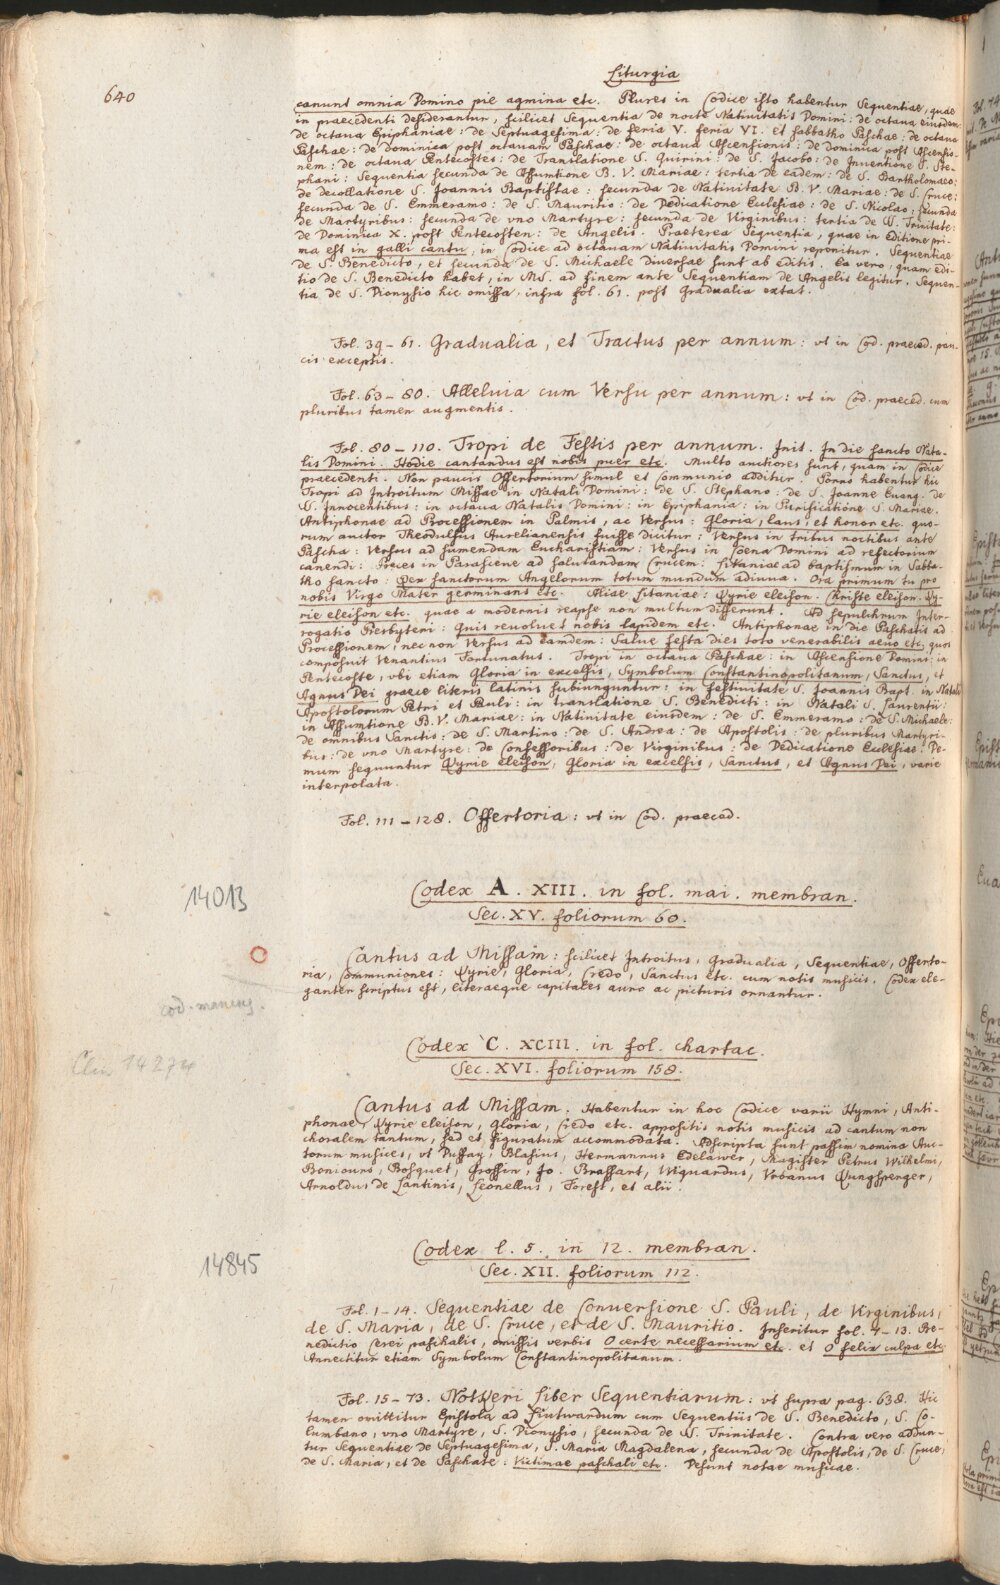 640
Liturgia
canunt omnia Domino pie agmina etc. Plures in Codice isto habentur Sequentiae, quae
in praecedenti desiderantur, scilicet Sequentia de nocte Nativitatis Domini: de octava eiusdem:
de octava Epiphaniae: de Septuagesima: de feria V. feria VI. et Sabbatho Paschae: de octava
Paschae: de dominica post octavam Paschae: de octava Ascensionis: de dominica post Ascensio-
nem: de octava Pentecostes: de Translatione S. Quirini: de S. Jacobo: de Inventione S. Ste-
phani: Sequentia secunda de Assumtione B. V. Mariae: tertia de eadem: de S. Bartholomaeo:
de decollatione S. Joannis Baptistae: secunda de Nativitate B. V. Mariae: de S. Cruce:
secunda de S. Emmeramo: de S. Mauritio: de Dedicatione Eclesiae: de S. Nicolao: secunda
de Martyribus: secunda de vno Martyre: secunda de Virginibus: tertia de S. Trinitate:
de Dominica X. post Pentecosten: de Angelis. Praeterea Sequentia, quae in Editione pri-
ma est in galli cantu, in Codice ad octavam Nativitatis Domini reponitur. Sequentiae
de S. Benedicto, et secunda de S. Michaele diuersae sunt ab editis. Ea vero, quam edi-
tio de S. Benedicto habet, in MS. ad finem ante Sequentiam de Angelis legitur. Sequen-
tia de S. Dionysio hic omissa infra fol. 61. post Gradualia extat.
Fol. 39-61. Gradualia, et Tractus per annum: vt in Cod. praeced. pau-
cis exceptis.
Fol. 63-80. Alleluia cum Versu per annum: vt in Cod. praeced. cum
pluribus tamen augmentis.
Fol. 80-110. Tropi de Festis per annum. Init. In die sancto Nata-
lis Domini. Hodie cantandus est nobis puer etc. Multo auctiores sunt, quam in Codice
praecedenti. Non paucis Offertorium simul et Communio additur. Porro habentur hic
Tropi ad Introitum Missae in Natali Domini: de S. Stephano: de S. Joanne Euang. de
S. Innocentibus: in octava Natalis Domini: in Epiphania: in Purificatione S. Mariae.
Antiphonae ad Processionem in Palmis, ac Versus: Gloria, laus, et honor etc. quo-
rum auctor Theodulfus Aurelianensis fuisse dicitur: Versus in tribus noctibus ante
Pascha: Versus ad sumendam Eucharistiam: Versus in Coena Domini ad refectorium
canendi: Preces in Parasceue ad salutandam Crucem: Litaniae ad baptismum in Sabba-
tho sancto: Rex sanctorum Angelorum totum mundum adiuua. Ora primum tu pro
nobis Virgo Mater germinans etc. Aliae Litaniae: Kyrie eleison. Christe eleison. Ky-
rie eleison etc. quae a modernis reapse non multum differunt. Ad sepulchrum Inter-
rogatio Presbyteri: Quis revoluet nobis lapidem etc. Antiphonae in die Paschatis ad
Processionem, nec non Versus ad eamdem: Salue festa dies toto venerabilis aeuo etc. quos
composuit Venantius Fortunatus. Tropi in octava Paschae: in Ascensione Domini: in
Pentecoste, vbi etiam Gloria in excelsis, Symbolum Constantinopolitanum, Sanctus, et
Agnus Dei graece literis latinis subiunguntur: in festivitate S. Joannis Bapt. in Natali
Apostolorum Petri et Pauli: in translatione S. Benedicti: in Natali S. Laurentii:
in Assumtione B. V. Mariae: in Natiuitate eiusdem: de S. Emmeramo: de S. Michaele:
de omnibus Sanctis: de S. Martino: de S. Andrea: de Apostolis: de pluribus Martyri-
bus: de vno Martyre: de Confessoribus: de Virginibus: de Dedicatione Eclesiae. De-
mum sequuntur Kyrie eleison, Gloria in excelsis, Sanctus, et Agnus Dei, varie
interpolata.
Fol. 111-128. Offertoria: vt in Cod. praeced.
14013
Codex A. XIII. in fol. mai. membran.
Sec. XV. foliorum 60.
Cantus ad Missam: scilicet Introitus, Gradualia, Sequentiae, Offerto-
ria, Communiones: Kyrie, Gloria, Credo, Sanctus etc. cum notis musicis. Codex ele-
ganter scriptus est, literaeque capitales auro ac picturis ornantur.
Codex C. XCIII. in fol. chartac.
Clm 14274
Sec. XVI. foliorum 158.
Cantus ad Missam. Habentur in hoc Codice varii Hymni, Anti-
phonae, Kyrie eleison, Gloria, Credo etc. appositis notis musicis ad cantum non
choralem tantum, sed et figuratum accommodata. Adscripta sunt passim nomina Auc-
torum musices, vt Duffay, Blasius, Hermannus Edelawer, Magister Petrus Wilhelmi,
Boniouns, Bosquet, Grossin, Jo. Brassart, Wiquardus, Vrbanus Kungsperger,
Arnoldus de Lantinis, Leonellus, Forest, et alii.
14845
Codex l. 5. in 12. membran.
Sec. XII. foliorum 112.
Fol. 1-14. Sequentiae de Conuersione S. Pauli, de Virginibus,
de S. Maria, de S. Cruce, et de S. Mauritio. Inseritur fol. 7-13. Be-
nedictio Cerei paschalis, omissis verbis O certe necessarium etc. et O felix culpa etc.
Annectitur etiam Symbolum Constantinopolitanum.
Fol. 15-73. Notkeri Liber Sequentiarum: vt supra pag. 638. Hic
tamen omittitur Epistola ad Liutwardum cum Sequentiis de S. Benedicto, S. Co-
lumbano, vno Martyre, S. Dionysio, secunda de S. Trinitate. Contra vero addun-
tur Sequentiae de Septuagesima, S. Maria Magdalena, secunda de Apostolis, de S. Cruce,
de S. Maria, et de Paschate: Victimae paschali etc. Desunt notae musicae.